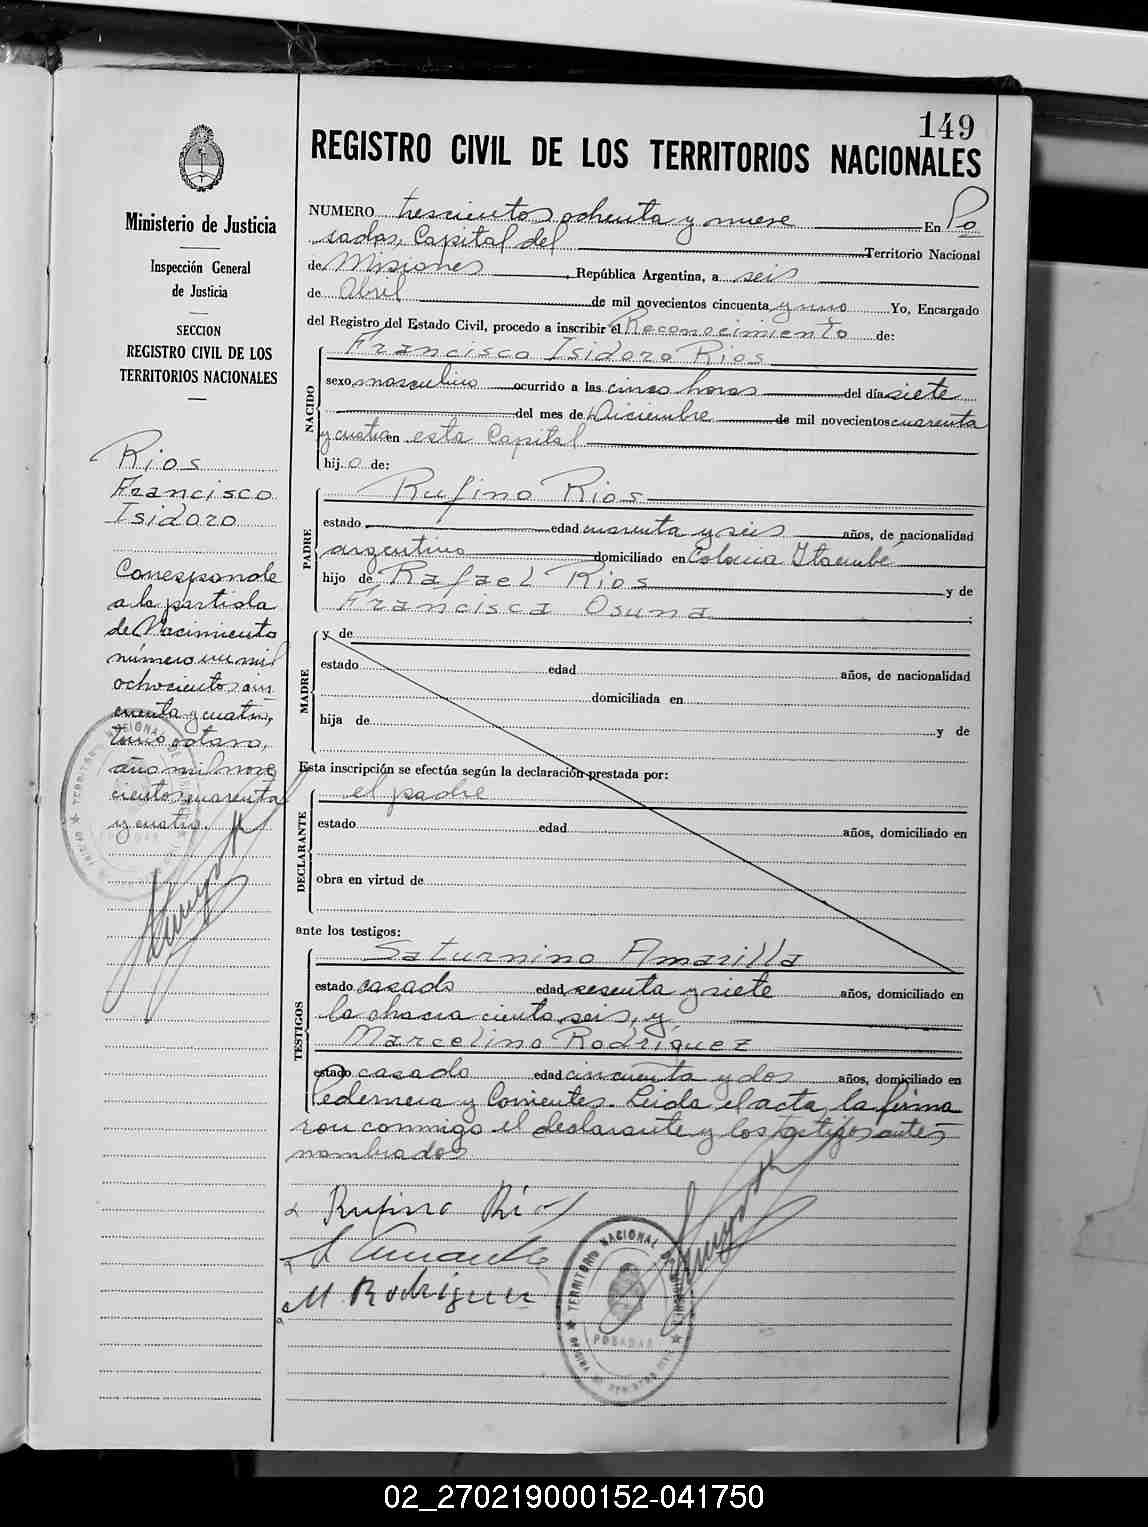 149
REGISTRO CIVIL DE LOS TERRITORIOS NACIONALES
Ministerio de Justicia
Inspección General
de Justicia
SECCION
REGISTRO CIVIL DE LOS
TERRITORIOS NACIONALES
Rios
Francisco
Isidoro
Corresponde
a la partida
de Nacimiento
número un mil
ochocientos cin
cuenta y cuatro,
tomo octavo,
año mil nove
cientos cuarenta
y cuatro.
NUMERO trescientos ochenta y nueve En Po
sadas, Capital del Territorio Nacional
de Misiones, República Argentina, a seis
de Abril de mil novecientos cincuenta y uno Yo, Encargado
del Registro del Estado Civil, procedo a inscribir el Reconocimiento de:
NACIDO
Francisco Isidoro Rios
sexo masculino ocurrido a las cinco horas del día siete
del mes de Diciembre de mil novecientos cuarenta
y cuatro en esta Capital
hij o de:
PADRE
Rufino Rios
estado edad cuarenta y seis años, de nacionalidad
argentino domiciliado en Colonia Itaembé
hijo de Rafael Rios y de
Francisca Osuna
MADRE
y de
estado edad años, de nacionalidad
domiciliada en
hija de y de
Esta inscripción se efectúa según la declaración prestada por:
DECLARANTE
el padre
estado edad años, domiciliado en
obra en virtud de
ante los testigos:
TESTIGOS
Saturnino Amarilla
estado casado edad sesenta y siete años, domiciliado en
la chacra ciento seis, y
Marcelino Rodriguez
estado casado edad cincuenta y dos años, domiciliado en
Pedernera y Corrientes. Leida el acta, la firma
ron conmigo el declarante y los testigos antes
nombrados
Rufino Rios
M. Rodriguez
TERRITORIO NACIONAL DE MISIONES
POSADAS
02_270219000152-041750